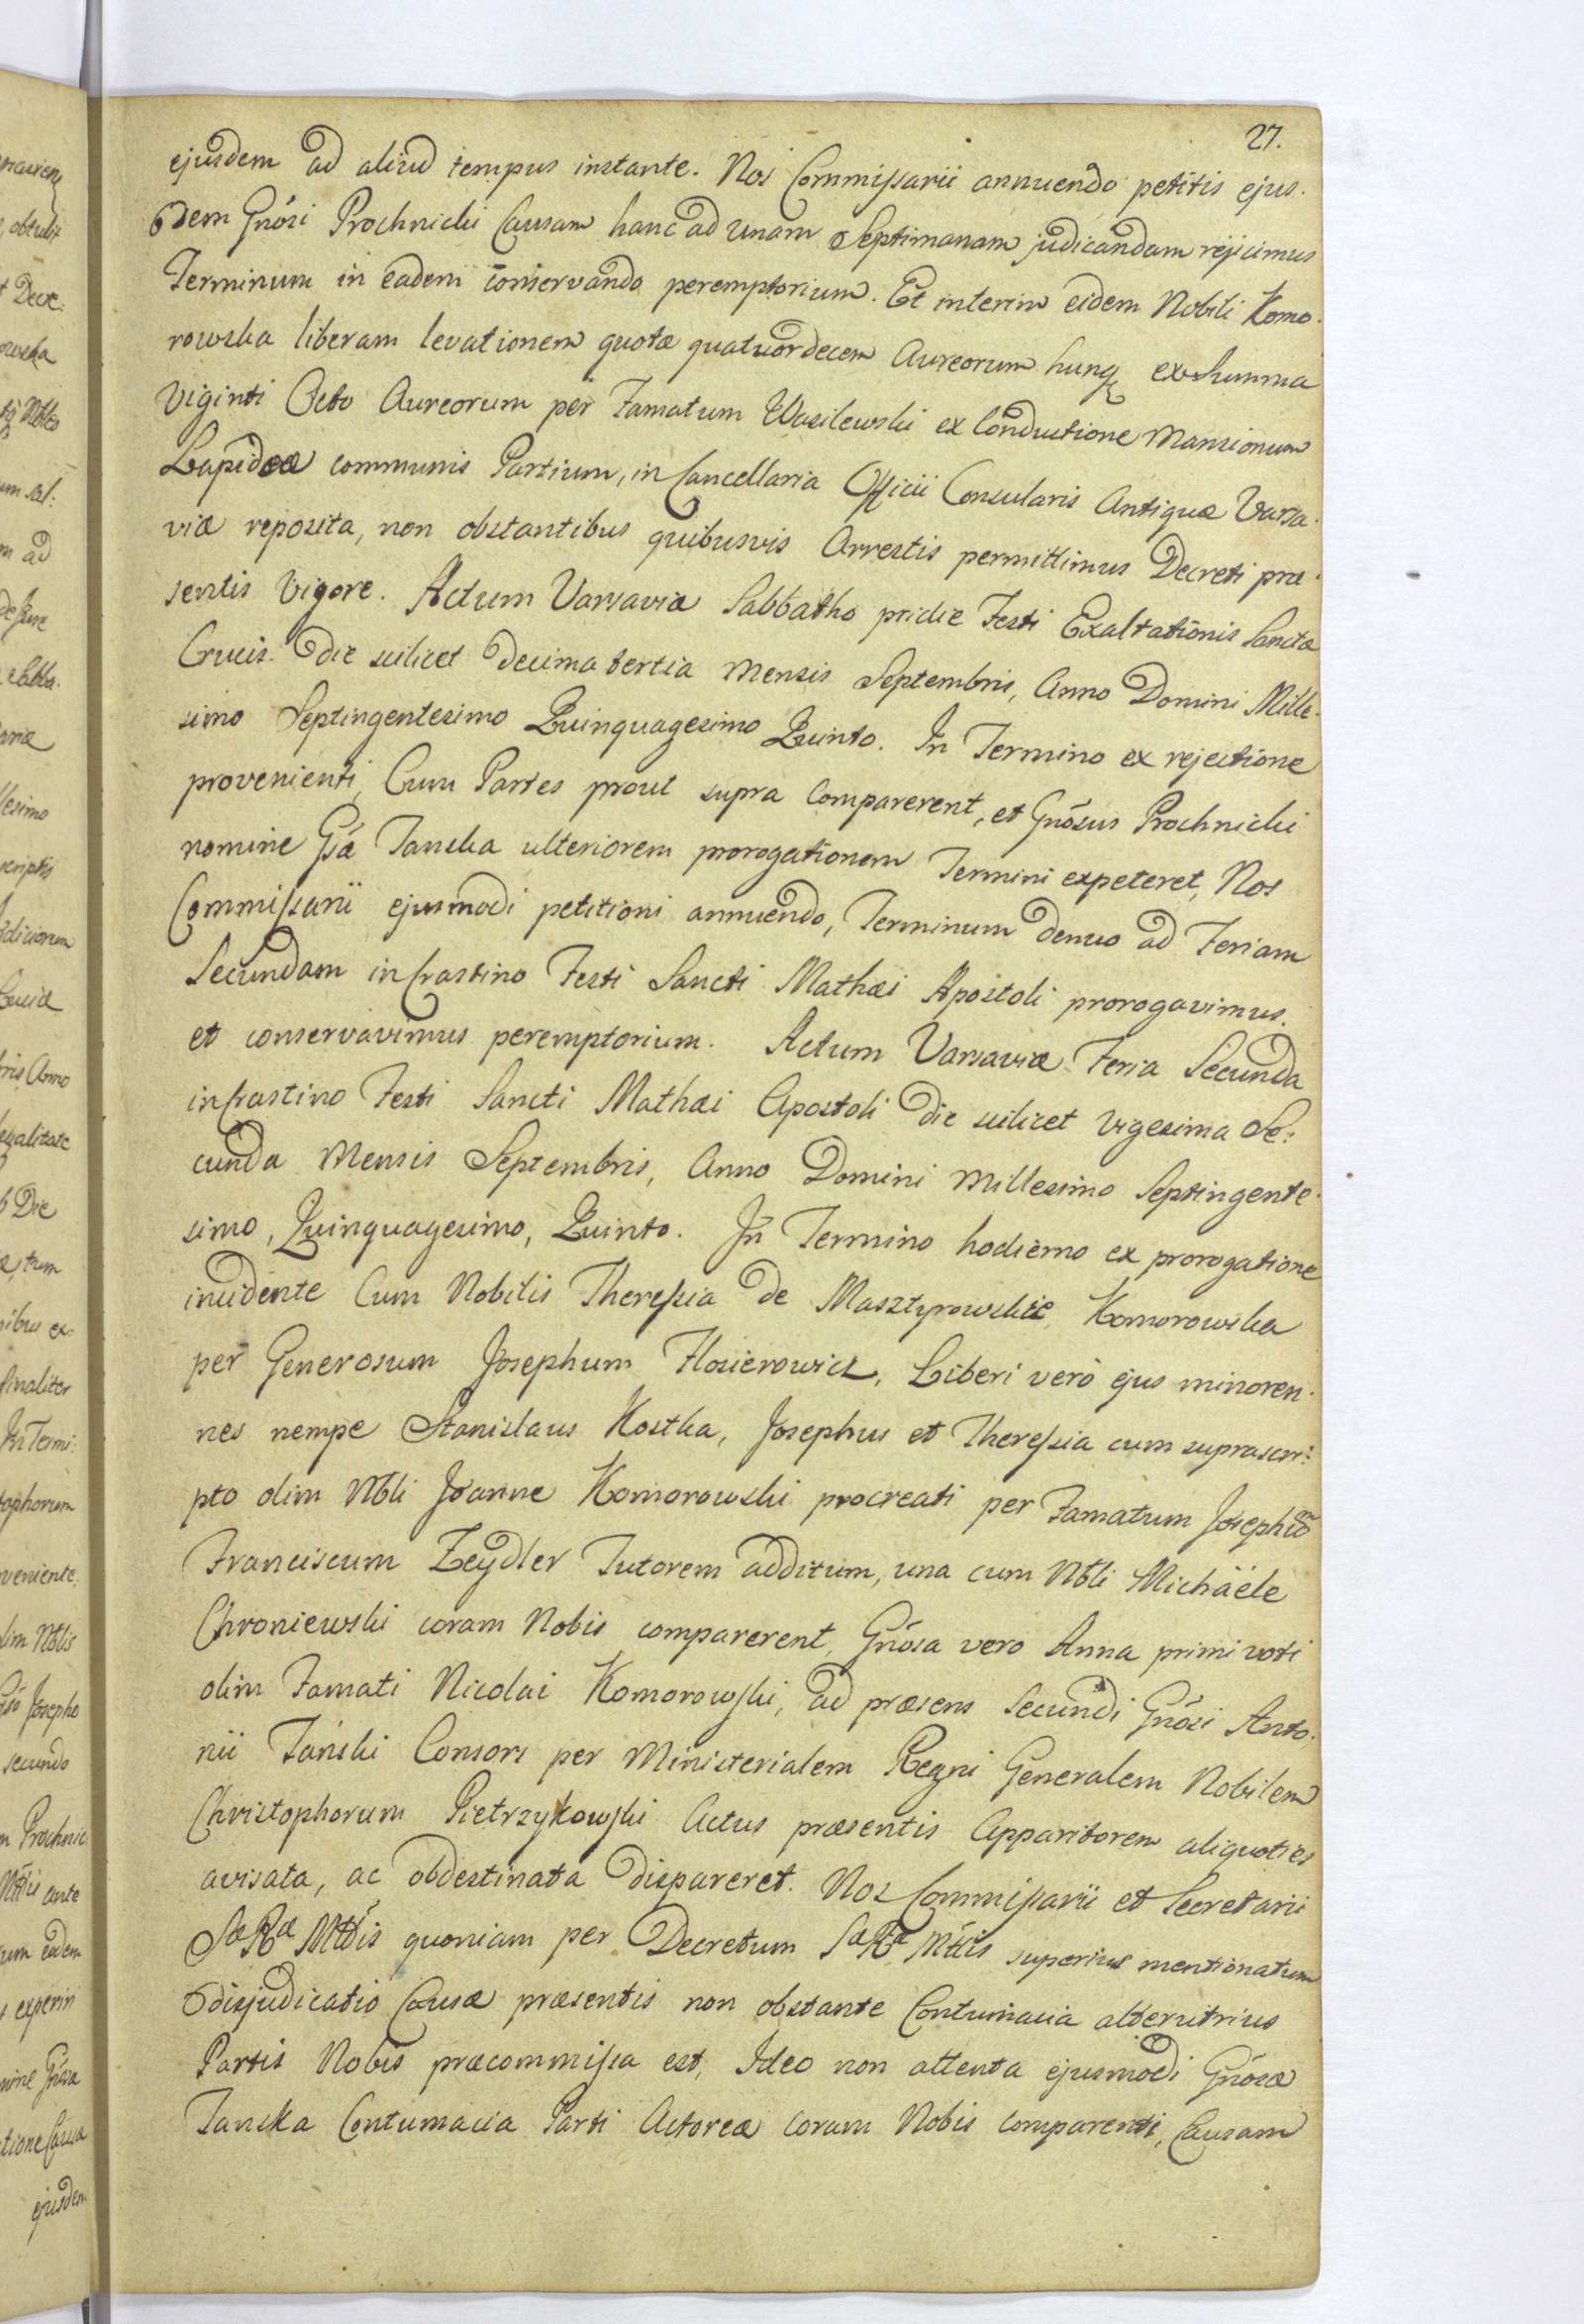 27.
ejusdem ad aliud tempus instante. Nos Commissarii annuendo petitis ejus.
dem Gnôsi Prochnicki Causam hanc ad unam Septimanam judicandam rejicimus
Terminum in eadem conservando peremptorium. Et interim eidem Nobili Komo.
rowska liberam levationem quotæ quatuordecem Aureorum hung ex Summa
Viginti Octo Aureorum per Famatum Wasilewski ex Conductione Mansionum
Lapideæ communis Partium, in Cancellaria Officii Consularis Antiquæ Varsa.
viæ reposita, non obstantibus quibusvis Arrestis permittimus Decreti præ.
sentis Vigore. Actum Varsaviæ Sabbatho pridie Festi Exaltationis Sanctæ
Crucis. Die scilicet Decima tertia Mensis Septembris, Anno Domini Mille.
simo Septingentesimo Quinquagesimo Quinto. In Termino ex rejectione
provenienti, Cum Partes prout supra Comparerent, et Gnôsus Prochnicki
nomine Gsæ Tanska ulteriorem prorogationem Termini expeteret, Nos
Commissarii ejusmodi petitioni annuendo, Terminum denuo ad Feriam
Secundam in Crastino Festi Sancti Mathæi Apostoli prorogavimus.
et conservavimus peremptorium. Actum Varsaviæ Feria Secunda
in Crastino Festi Sancti Mathæi Apostoli die scilicet Vigesima Se:
cunda Mensis Septembris, Anno Domini Millesimo Septingente.
simo, Quinquagesimo, Quinto. In Termino hodierno ex prorogatione
incidente Cum Nobilis Theressia de Masztyrowskie Komorowska
per Generosum Josephum Flosierowicz, Liberi verò ejus minoren.
nes nempe Stanislaus Kostka, Josephus et Theressia cum suprascri:
pto olim Nbli Joanne Komorowski procreati per Famatum Josephum
Franciscum Zeydler Tutorem additum, una cum Nbli Michäele
Chroniewski coram Nobis comparerent, Gnôsa vero Anna primi voti
olim Famati Nicolai Komorowski, ad præsens Secundi Gnôsi Anto.
nii Tański Consors per Ministerialem Regni Generalem Nobilem
Christophorum Pietrzykowski Actus præsentis Apparitorem aliquoties
avisata, ac obdestinata dispareret. Nos Commissarii et Secretarii
Sæ Ræ Mttis quoniam per Decretum Sæ Ræ Mttis superius mentionatum
disjudicatio Causæ præsentis non obstante Contumacia alterutrius
Partis Nobis præcommissa est, Ideo non attenta ejusmodi Gnôsæ
Tanska Contumacia Parti Actoreæ Coram Nobis Comparenti, Causam